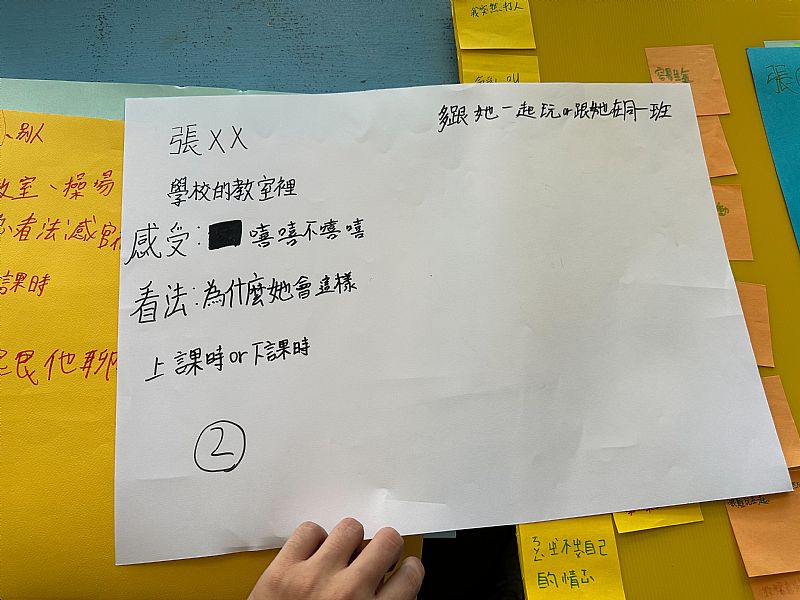 張XX
多跟她一起玩or跟她在同一班
學校的教室裡
感受：嘻嘻不嘻嘻
看法：為什麼她會這樣
上課時or下課時
2
別人
教室、操場
看法感官
課時
跟他聊
我突然打人
張
ㄎㄨㄥ出不去自己
的情